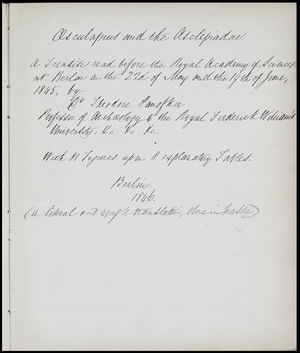 Æsculapius and the Asclepiadae.
A Treatise read before the Royal Academy of Sciences
at Berlin on the 22d of May and the 19th of June,
1845, by
Dr Theodore Panofka
Professor of Archaeology to the Royal Frederick William's
University. &c. &c. &c.
With 81 Figures upon 8 explanatory Tables.
Berlin
1846.
(A literal and rough translation, done in haste)